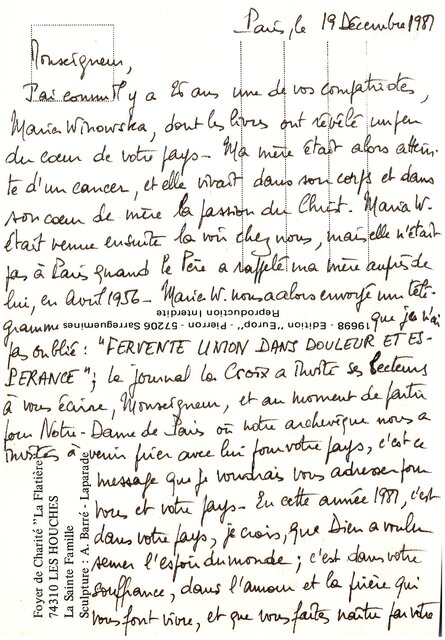 Paris, le 19 Décembre 1981
Monseigneur,
J'ai connu il y a 26 ans une de vos compatriotes,
Maria Winowska, dont les livres ont révélé un peu
du cœur de votre pays - Ma mère était alors attein-
te d'un cancer, et elle vivait dans son corps et dans
son cœur de mère la passion du Christ. Maria W.
était venue ensuite la voir chez nous, mais elle n'était
pas à Paris quand le Père a rappelé ma mère auprès de
lui, en Avril 1956 - Maria W. nous a alors envoyé un télé-
gramme que je n'ai
pas oublié : "FERVENTE UNION DANS DOULEUR ET ES-
PERANCE" ; le journal La Croix a invité ses lecteurs
à vous écrire, Monseigneur, et au moment de partir
pour Notre-Dame de Paris où notre archevêque nous a
invités à venir prier avec lui pour votre pays, c'est ce
message que je voudrais vous adresser pour
vous et votre pays - En cette année 1981, c'est
dans votre pays, je crois, que Dieu a voulu
semer l'espoir du monde ; c'est dans votre
souffrance, dans l'amour et la prière qui
vous font vivre, et que vous faites naître par votre
19698 - Edition "Europ" - Pierron - 57206 Sarreguemines
Reproduction Interdite
Foyer de Charité "La Flatière"
74310 LES HOUCHES
La Sainte Famille
Sculpture : A. Barré - Laparade